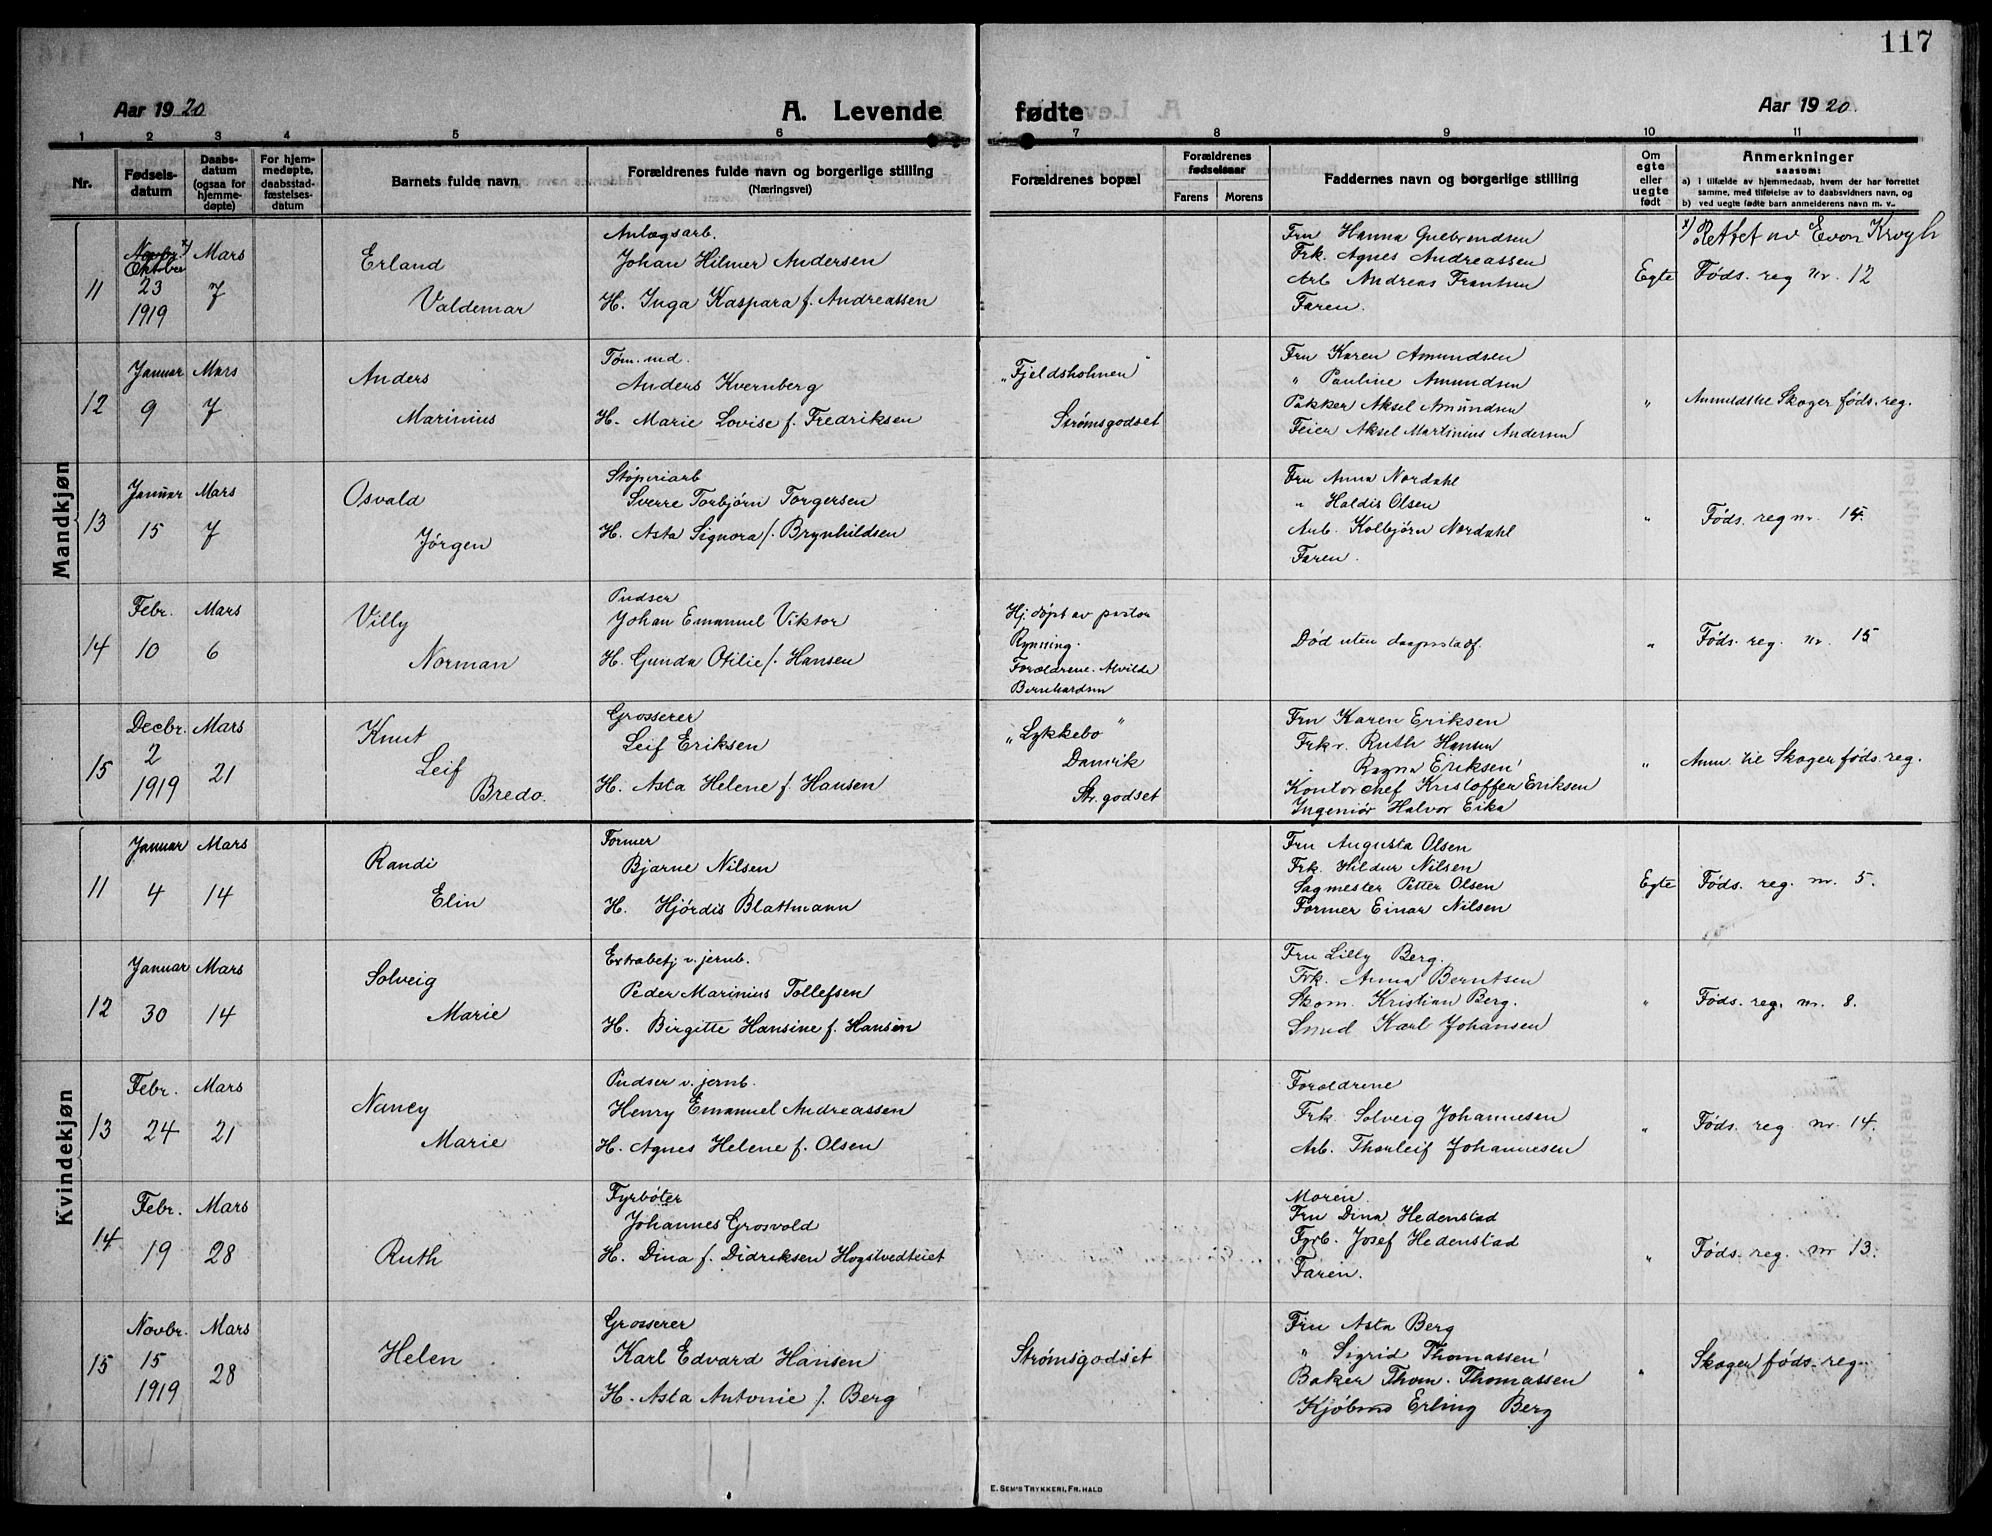 117
Aar 1920
A. Levende
fødte
Aar 1920.
1 2 3 4 5 6 7 8 9 10 11
Nr.
Fødsels-
datum
Daabs-
datum
(ogsaa for
hjemme-
døpte)
For hjem-
medøpte,
daabsstad-
fæstelses-
datum
Barnets fulde navn
Forældrenes fulde navn og borgerlige stilling
(Næringsvei)
Forældrenes bopæl
Forældrenes
fødselsaar
Farens Morens
Faddernes navn og borgerlige stilling
Om
egte
eller
uegte
født
Anmerkninger
saasom:
a) i tilfælde av hjemmedaab, hvem der har forrettet
samme, med tilføielse av to daabsvidners navn, og
b) ved uegte fødte barn anmelderens navn m. v.
Mandkjøn
11
Novbr. x)
Oktober
23
1919
Mars
7
Erland
Valdemar
Anlægsarb.
Johan Hilmer Andersen
H. Inga Kaspara f. Andreassen
Fru Hanna Gulbrandsen
Frk. Agnes Andreassen
Arb Andreas Frantsen
Faren.
Egte
x) Rettet av Evon Krogh
Føds. reg nr. 12
12
Januar
9
Mars
7
Anders
Marinius
Tøm. md.
Anders Kvernberg
H. Marie Lovise f. Fredriksen
"Fjeldsholmen"
Strømsgodset
Fru Karen Amundsen
" Pauline Amundsen
Pakker Aksel Amundsen
Feier Aksel Martinius Andersen
"
Anmeldt til Skoger føds. reg.
13
Januar
15
Mars
7
Osvald
Jørgen
Støperiarb
Sverre Torbjørn Torgersen
H. Asta Signora f. Brynhildsen
Fru Anna Nordahl
" Haldis Olsen
Arb. Kolbjørn Nordahl
Faren.
"
Føds. reg nr. 14.
14
Febr.
10
Mars
6
Villy
Norman
Pudser
Johan Emanuel Viktor
H. Gunda Otilie f. Hansen
Hj. døpt av pastor
Rynning.
Forældrene. Alvilde
Bernhardsen
Død uten daapsstadf.
"
Føds. reg. nr. 15
15
Decbr.
2
1919
Mars
21
Knut
Leif
Bredo.
Grosserer
Leif Eriksen
H. Asta Helene f. Hansen
"Lykkebo"
Danvik
Str. godset
Fru Karen Eriksen
Frkr. Ruth Hansen
Ragna Eriksen
Kontorchef Kristoffer Eriksen
Ingeniør Halvor Eika
"
Anm. til Skoger føds. reg.
Kvindekjøn
11
Januar
4
Mars
14
Randi
Elin
Former
Bjarne Nilsen
H. Hjørdis Blattmann
Fru Augusta Olsen
Frk. Hildur Nilsen
Sagmester Petter Olsen
Former Einar Nilsen
Egte
Føds. reg. nr. 5.
12
Januar
30
Mars
14
Solveig
Marie
Extrabetj v. jernb.
Peder Marinius Tollefsen
H. Birgitte Hansine f. Hansen
Fru Lilly Berg.
Frk. Anna Berntsen
Skom. Kristian Berg.
Smed Karl Johansen
"
Føds. reg. nr. 8.
13
Febr.
24
Mars
21
Nancy
Marie
Pudser v. jernb.
Henry Emanuel Andreassen
H. Agnes Helene f. Olsen
Forældrene
Frk. Solveig Johannesen
Arb. Thorleif Johannesen
"
Føds. reg. nr. 14.
14
Febr.
19
Mars
28
Ruth
Fyrbøter
Johannes Grosvold
H. Dina f. Didriksen Hogstvedteiet
Moren.
Fru Dina Hedenstad
Fyrb. Josef Hedenstad
Faren.
"
Føds. reg. nr 13.
15
Novbr.
15
1919
Mars
28
Helen
Grosserer
Karl Edvard Hansen
H. Asta Antonie f. Berg
Strømsgodset
Fru Asta Berg
" Sigrid Thomassen
Baker Thom. Thomassen
Kjøbmd Erling Berg
"
Skoger føds. reg.
E. SEM'S TRYKKERI, FR. HALD